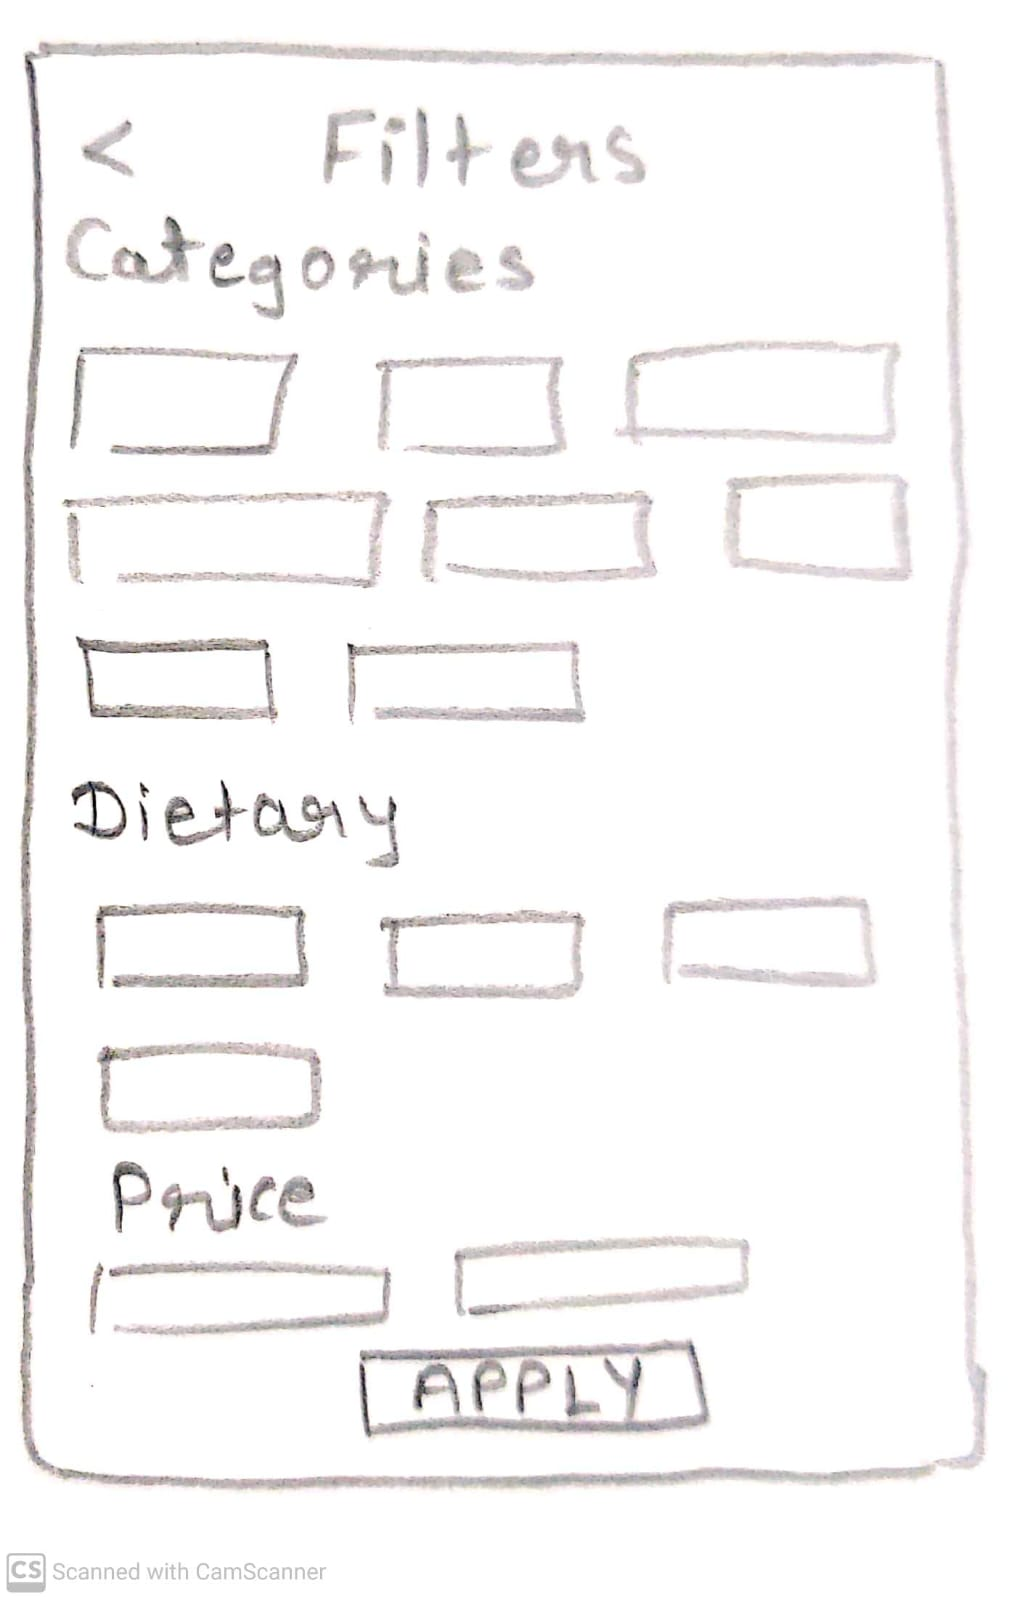 < Filters
Categories
Dietary
Price
APPLY
CS Scanned with CamScanner